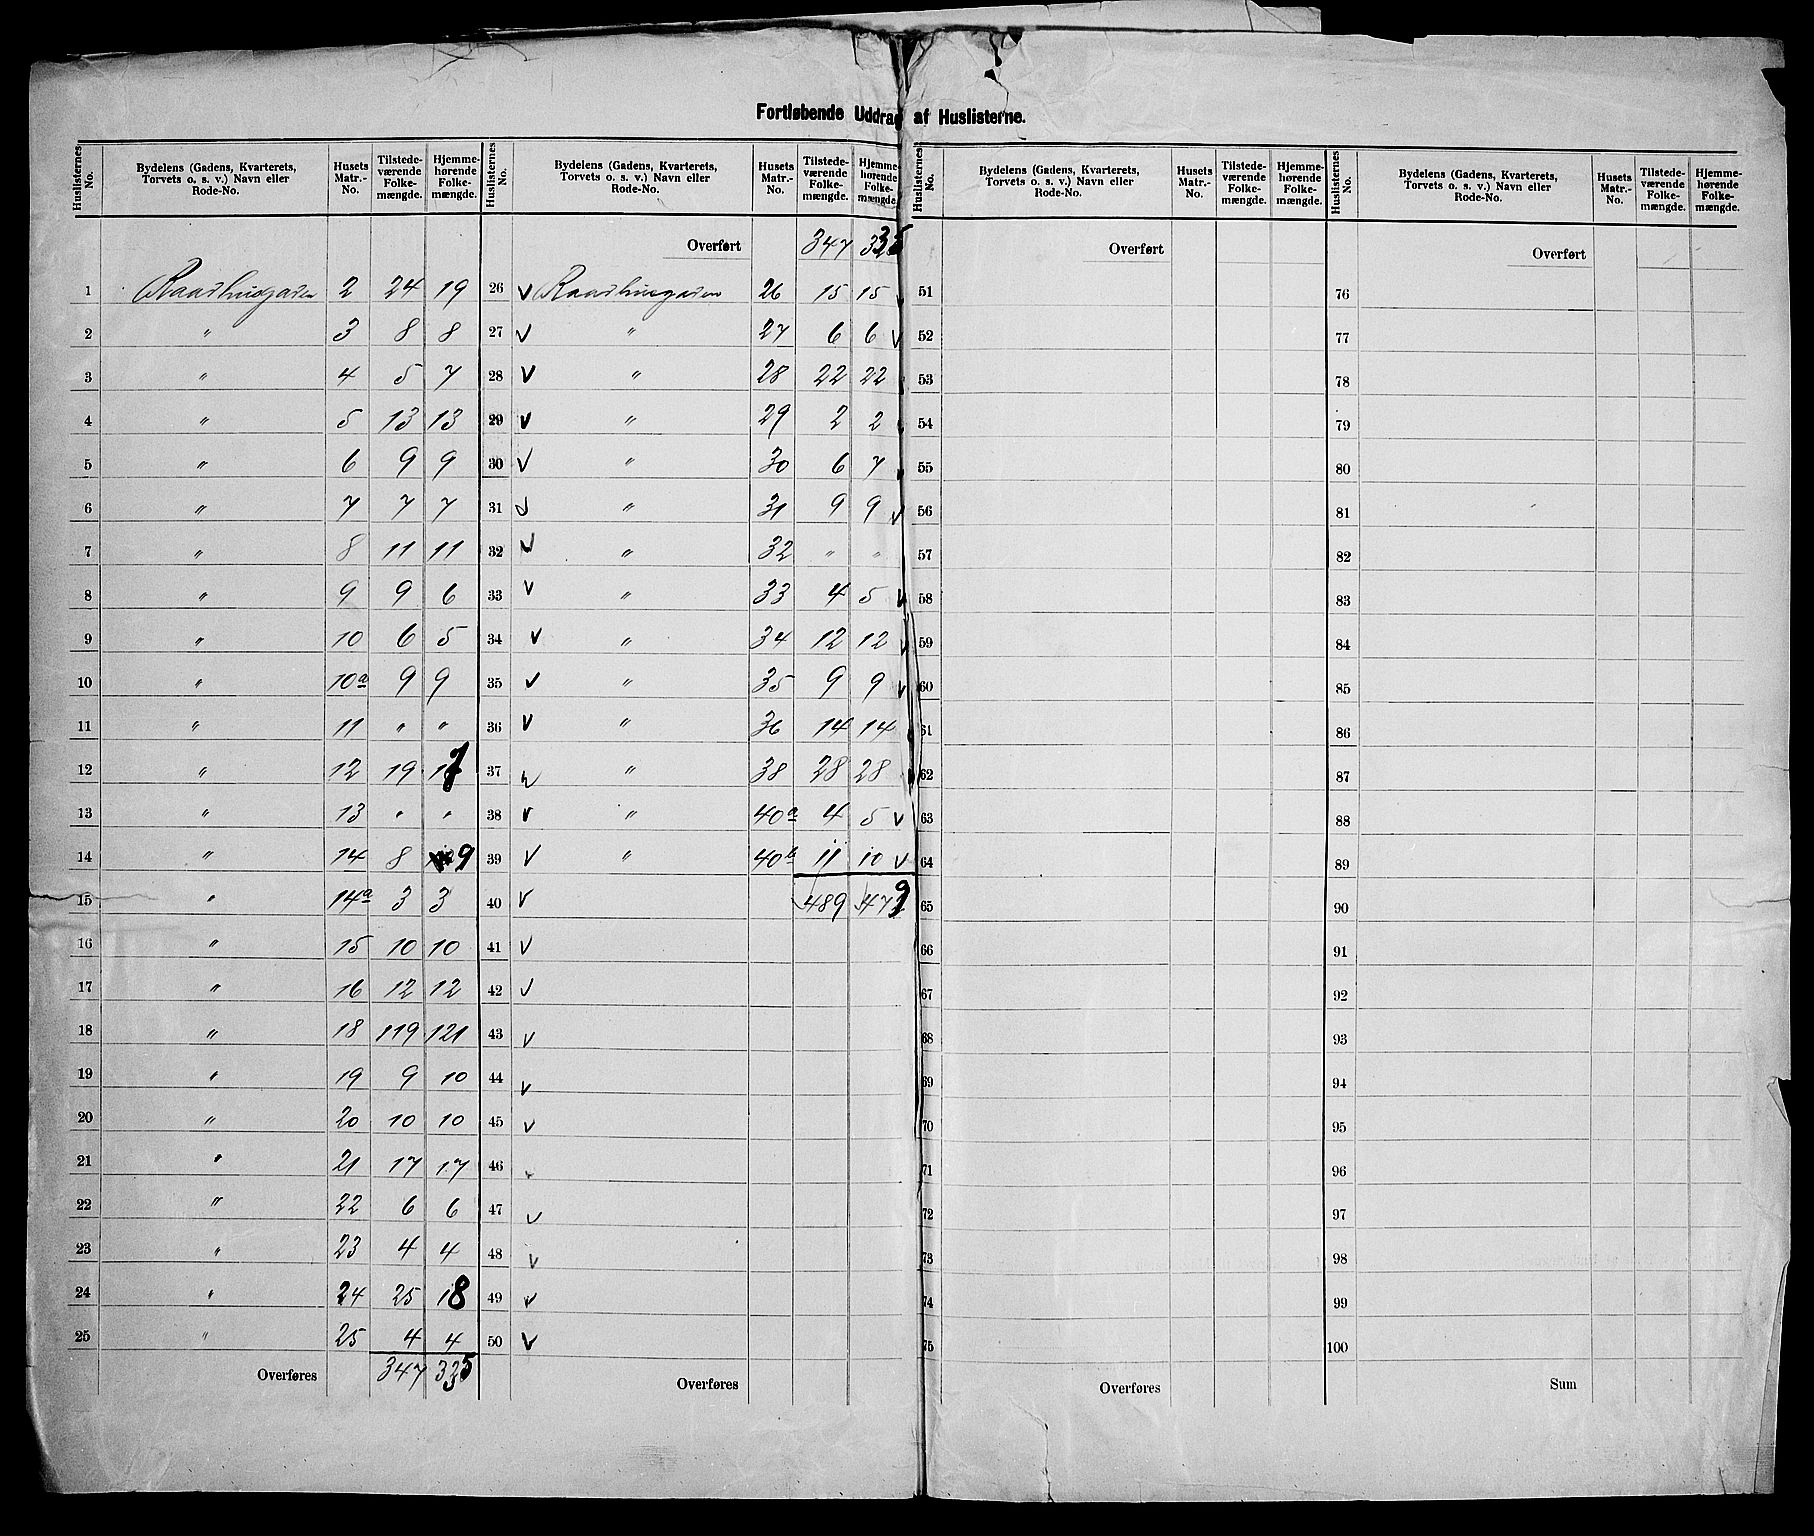 Fortløbende Uddrag af Huslisterne.
Huslisternes No. | Bydelens (Gadens, Kvarterets, Torvets o. s. v.) Navn eller Rode-No. | Husets Matr.-No. | Tilstedeværende Folkemængde. | Hjemmehørende Folkemængde.
1 Raadhusgaden 2 24 19
2 " 3 8 8
3 " 4 5 7
4 " 5 13 13
5 " 6 9 9
6 " 7 7 7
7 " 8 11 11
8 " 9 9 6
9 " 10 6 5
10 " 10a 9 9
11 " 11 " "
12 " 12 19 17
13 " 13 " "
14 " 14 8 9
15 " 14a 3 3
16 " 15 10 10
17 " 16 12 12
18 " 18 119 121
19 " 19 9 10
20 " 20 10 10
21 " 21 17 17
22 " 22 6 6
23 " 23 4 4
24 " 24 25 18
25 " 25 4 4
Overføres 347 335
Huslisternes No. | Bydelens (Gadens, Kvarterets, Torvets o. s. v.) Navn eller Rode-No. | Husets Matr.-No. | Tilstedeværende Folkemængde. | Hjemmehørende Folkemængde.
Overført 347 335
26 V Raadhusgaden 26 15 15
27 V " 27 6 6 V
28 V " 28 22 22
29 V " 29 2 2
30 V " 30 6 7
31 V " 31 9 9 V
32 V " 32 " "
33 V " 33 4 5 V
34 V " 34 12 12 V
35 V " 35 9 9 V
36 V " 36 14 14
37 V " 38 28 28
38 V " 40a 4 5 V
39 V " 40b 11 10 V
40 V 489 479
41 V
42 V
43 V
44 V
45 V
46
47 V
48 V
49 V
50 V
Overføres
Huslisternes No. | Bydelens (Gadens, Kvarterets, Torvets o. s. v.) Navn eller Rode-No. | Husets Matr.-No. | Tilstedeværende Folkemængde. | Hjemmehørende Folkemængde.
Overført
51
52
53
54
55
56
57
58
59
60
61
62
63
64
65
66
67
68
69
70
71
72
73
74
75
Overføres
Huslisternes No. | Bydelens (Gadens, Kvarterets, Torvets o. s. v.) Navn eller Rode-No. | Husets Matr.-No. | Tilstedeværende Folkemængde. | Hjemmehørende Folkemængde.
Overført
76
77
78
79
80
81
82
83
84
85
86
87
88
89
90
91
92
93
94
95
96
97
98
99
100
Sum